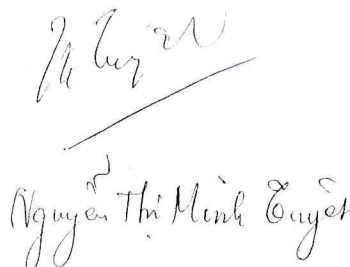 Nguyễn Thị Minh Tuyết